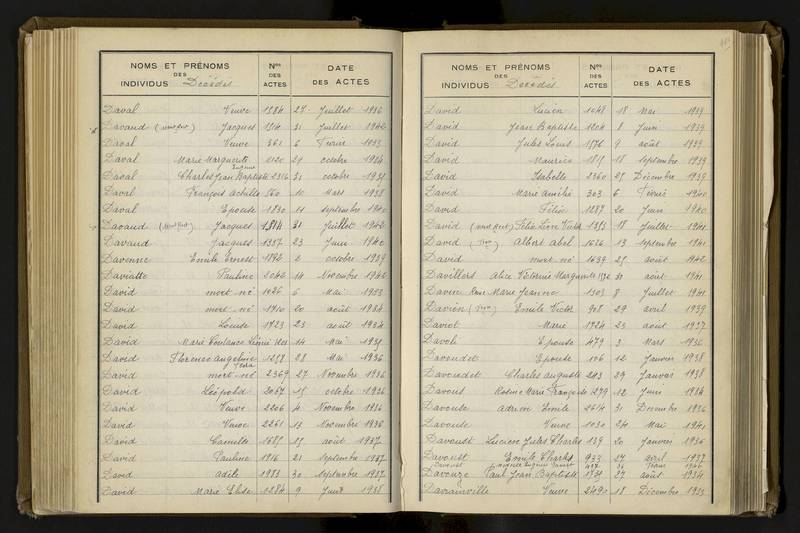 NOMS ET PRÉNOMS DES INDIVIDUS Décédés Nos DES ACTES DATE DES ACTES
Daval Veuve 1584 27 Juillet 1936
Davaud Jacques 1514 31 Juillet 1942
Daval Veuve 361 6 Février 1933
Daval Marie Marguerite 2120 29 octobre 1934
Eugène
Daval Charles Jean Baptiste 2316 31 octobre 1931
Daval François Achille 560 10 Mars 1938
Daval Epouse 1830 11 septembre 1940
Davaud Jacques 1514 31 Juillet 1942
Davaud Jacques 1357 23 Juin 1940
Davenne Emile Ernest 1892 2 octobre 1939
Daviatte Pauline 2042 14 Novembre 1942
David mort-né 1026 6 Mai 1933
David mort-né 1710 20 août 1934
David Louise 1723 23 août 1934
David Marie 14 Mai 1935
David Florence Angeline 1258 28 Mai 1936
David mort-né 2369 27 Novembre 1936
David Léopold 2067 15 octobre 1936
David Veuve 2206 4 Novembre 1936
David Veuve 2261 13 Novembre 1936
David Camille 1685 15 août 1937
David Pauline 1916 21 Septembre 1937
David adèle 1983 30 Septembre 1937
David Marie Elise 1284 9 Juin 1938
NOMS ET PRÉNOMS DES INDIVIDUS Décédés Nos DES ACTES DATE DES ACTES
David Lucien 1048 18 Mai 1939
David Jean Baptiste 1204 8 Juin 1939
David Jules Louis 1576 9 août 1939
David Maurice 1815 18 septembre 1939
David Isabelle 2360 27 Décembre 1939
David Marie Amélie 303 6 Février 1940
David Félix 1289 20 Juin 1940
David Félix Léon Victor 1353 18 Juillet 1941
David Albert Abel 1626 13 septembre 1941
David mort né 1639 25 août 1942
Davillers Alice Victorine Marguerite août 1941
Davin Rose Marie Jeanne 1303 8 Juillet 1941
Davion Emile Victor 908 29 avril 1939
Daviot Marie 1724 23 août 1937
Davoli Epouse 479 3 Mars 1936
Davoudet Epouse 106 12 Janvier 1938
Davoudet Charles auguste 243 29 Janvier 1938
Davous Rosine Marie Françoise 1279 12 Juin 1934
Davoute adrien Emile 2614 31 Décembre 1936
Davoute Veuve 1030 24 Mai 1941
Davoust Lucien Jules Charles 139 20 Janvier 1936
Davoust Emile Charles 933 27 avril 1937
Davoust
Davouze Paul Jean Baptiste 1751 27 août 1934
Davrainville Veuve 2490 18 Décembre 1933